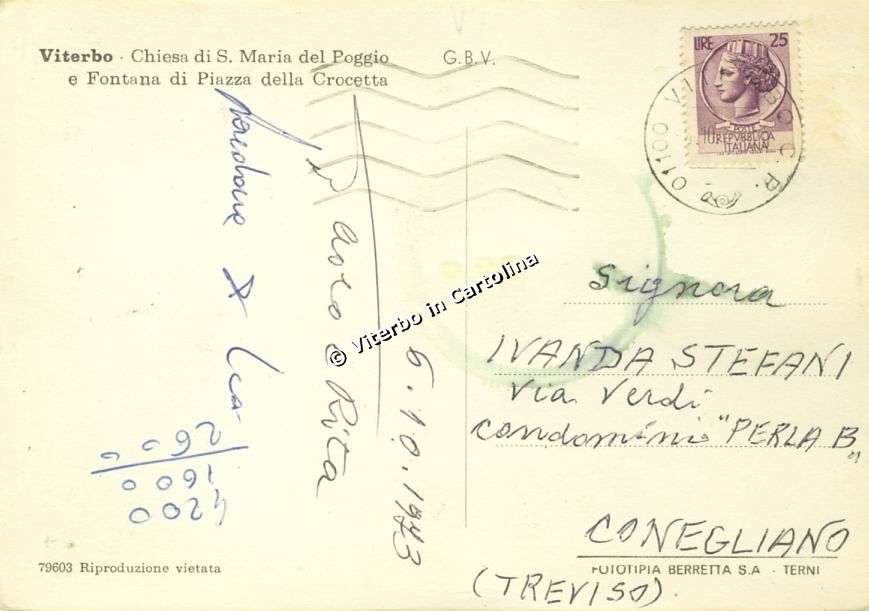 Viterbo · Chiesa di S. Maria del Poggio
e Fontana di Piazza della Crocetta
G.B.V.
LIRE 25
POSTE
REPVBBLICA
ITALIANA
01100 V
C.R.
Paolo e Rita
6.10.1973
© Viterbo in Cartolina
Signora
IVANDA STEFANI
Via Verdi
condominio "PERLA B"
CONEGLIANO
(TREVISO)
2600
1600
4200
79603 Riproduzione vietata
FOTOTIPIA BERRETTA S.A - TERNI